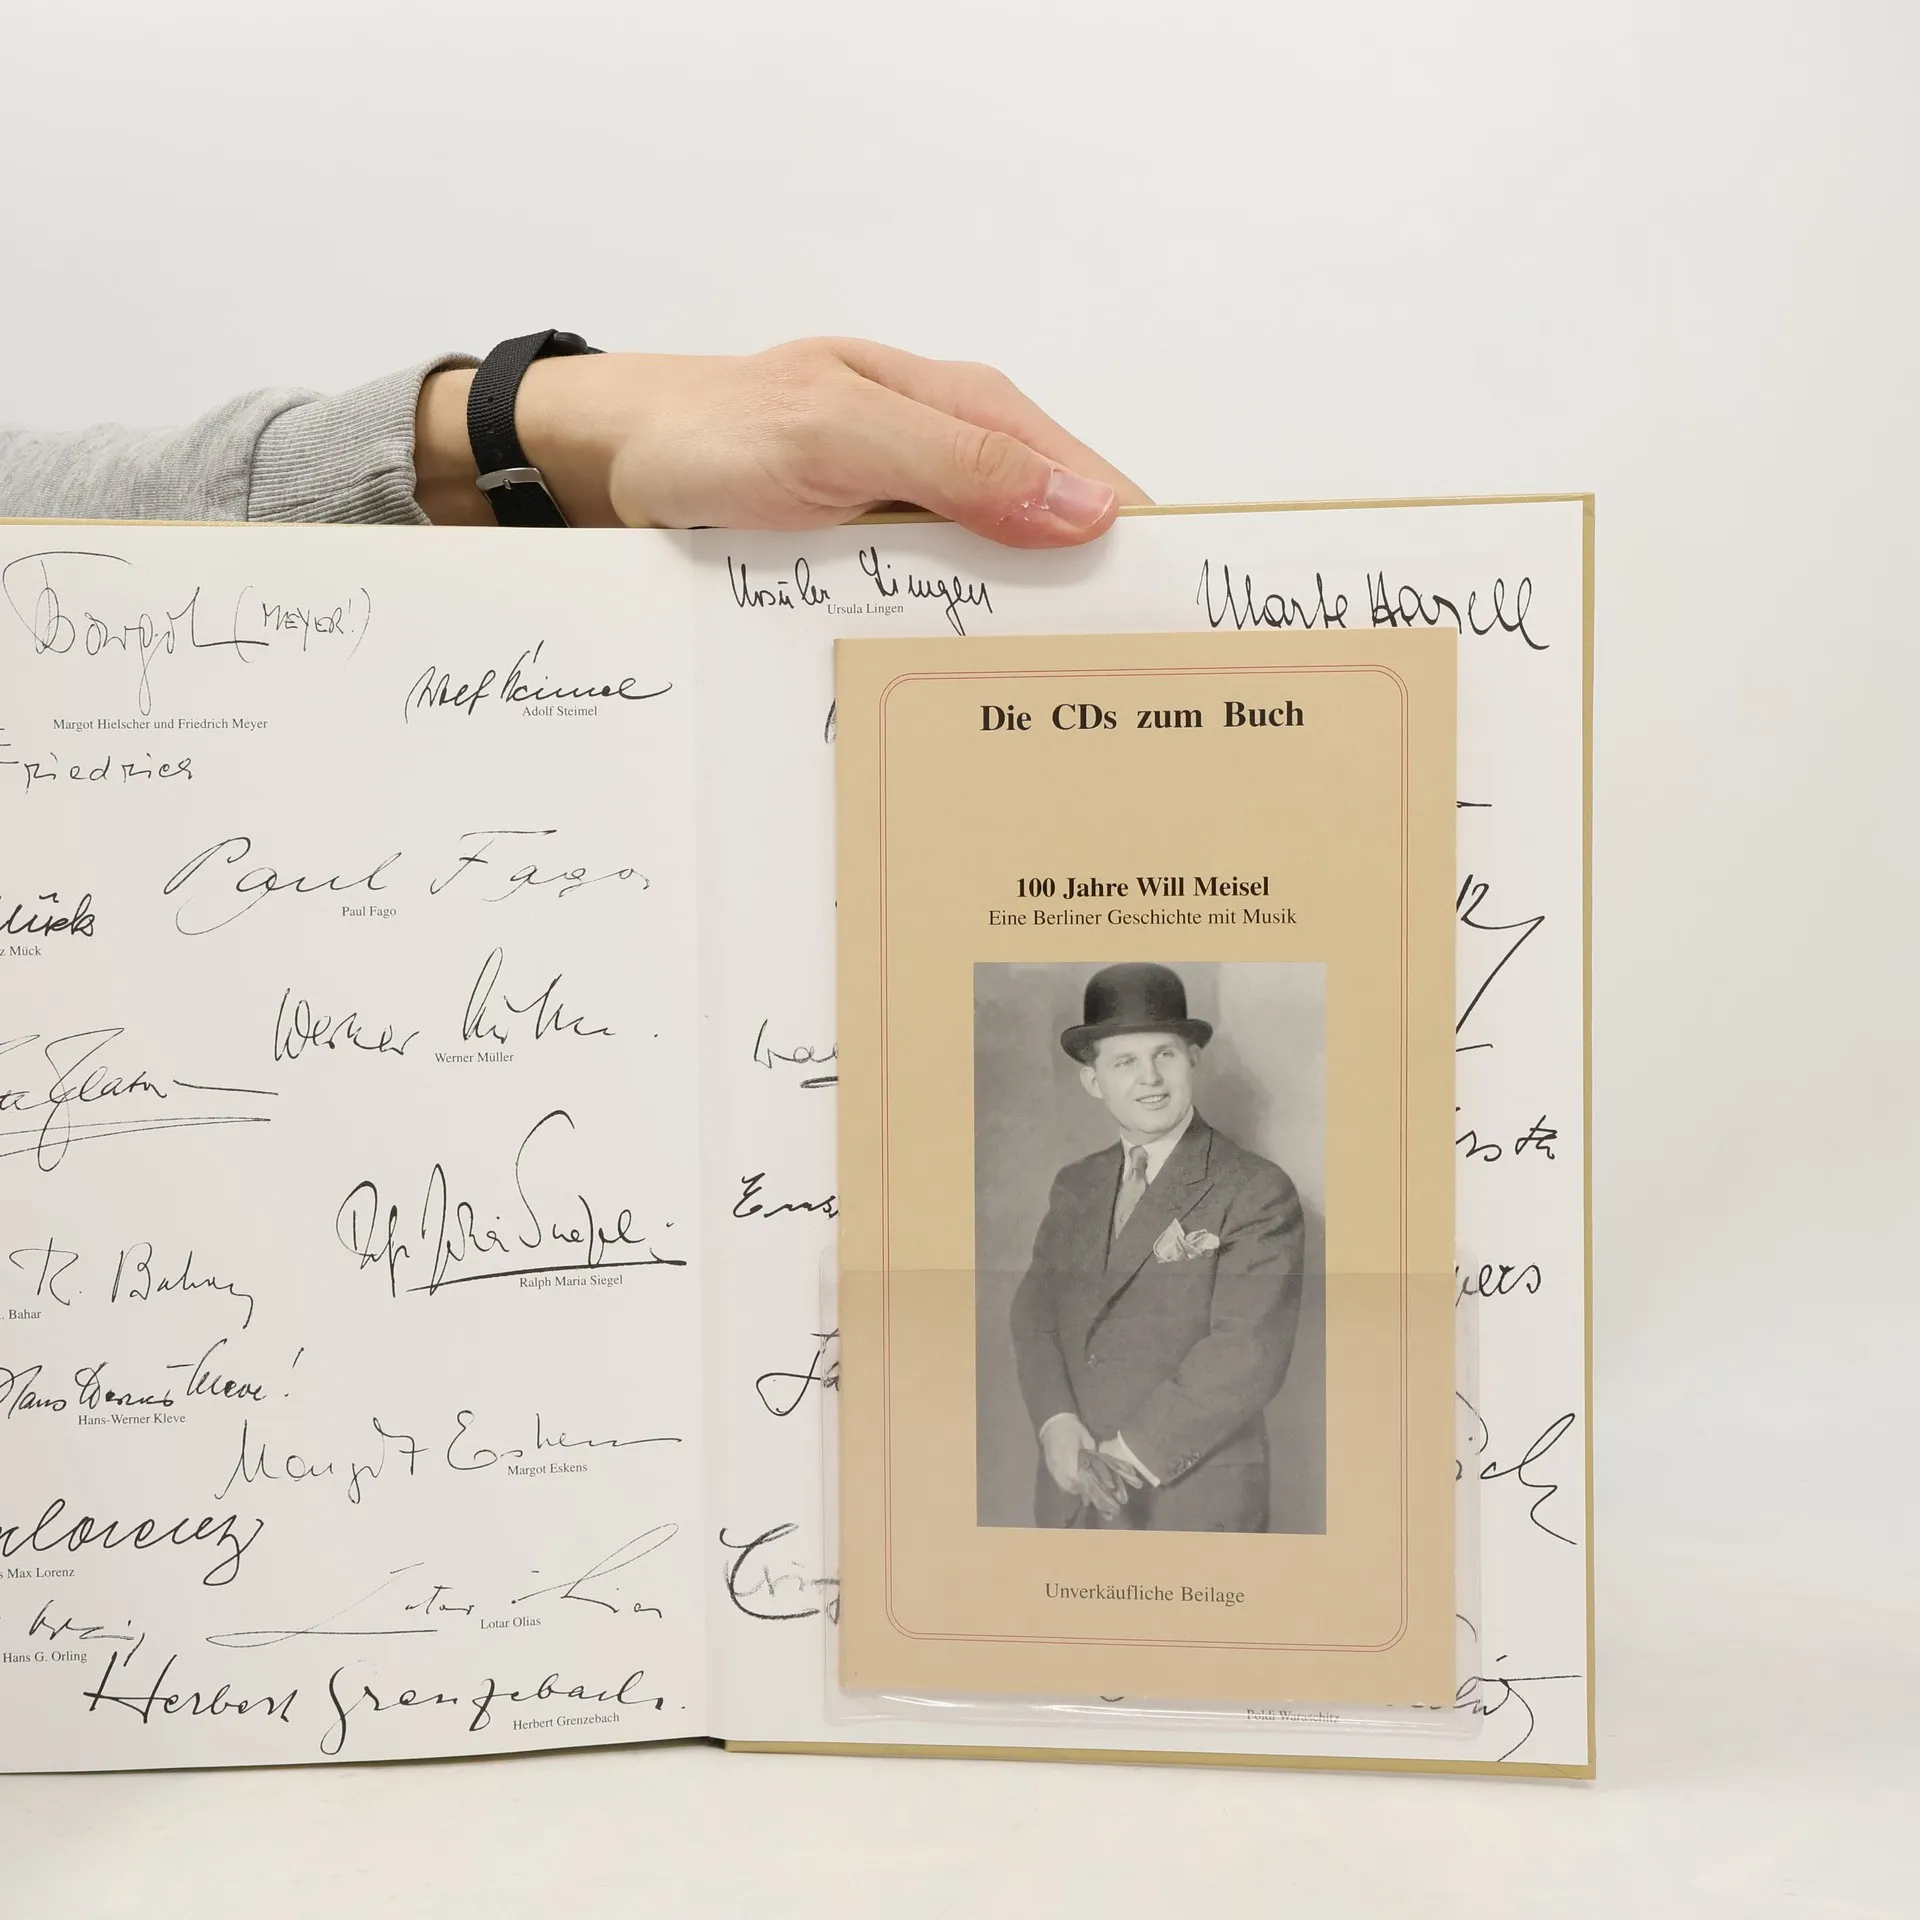 Margot (MEYER!)
Margot Hielscher und Friedrich Meyer
Friedrich
Adolf Steimel
Adolf Steimel
Paul Fago
Paul Fago
Mück
z Mück
Werner Müller
Werner Müller
Ralph Maria Siegel
Ralph Maria Siegel
R. Bahar
. Bahar
Hans Werner Kleve!
Hans-Werner Kleve
Margot Eskens
Margot Eskens
Lorenz
s Max Lorenz
Lotar Olias
Lotar Olias
Hans G. Orling
Herbert Grenzebach.
Herbert Grenzebach
Ursula Lingen
Ursula Lingen
Marte Harell
Die CDs zum Buch
100 Jahre Will Meisel
Eine Berliner Geschichte mit Musik
Unverkäufliche Beilage
Poldi Waraschitz